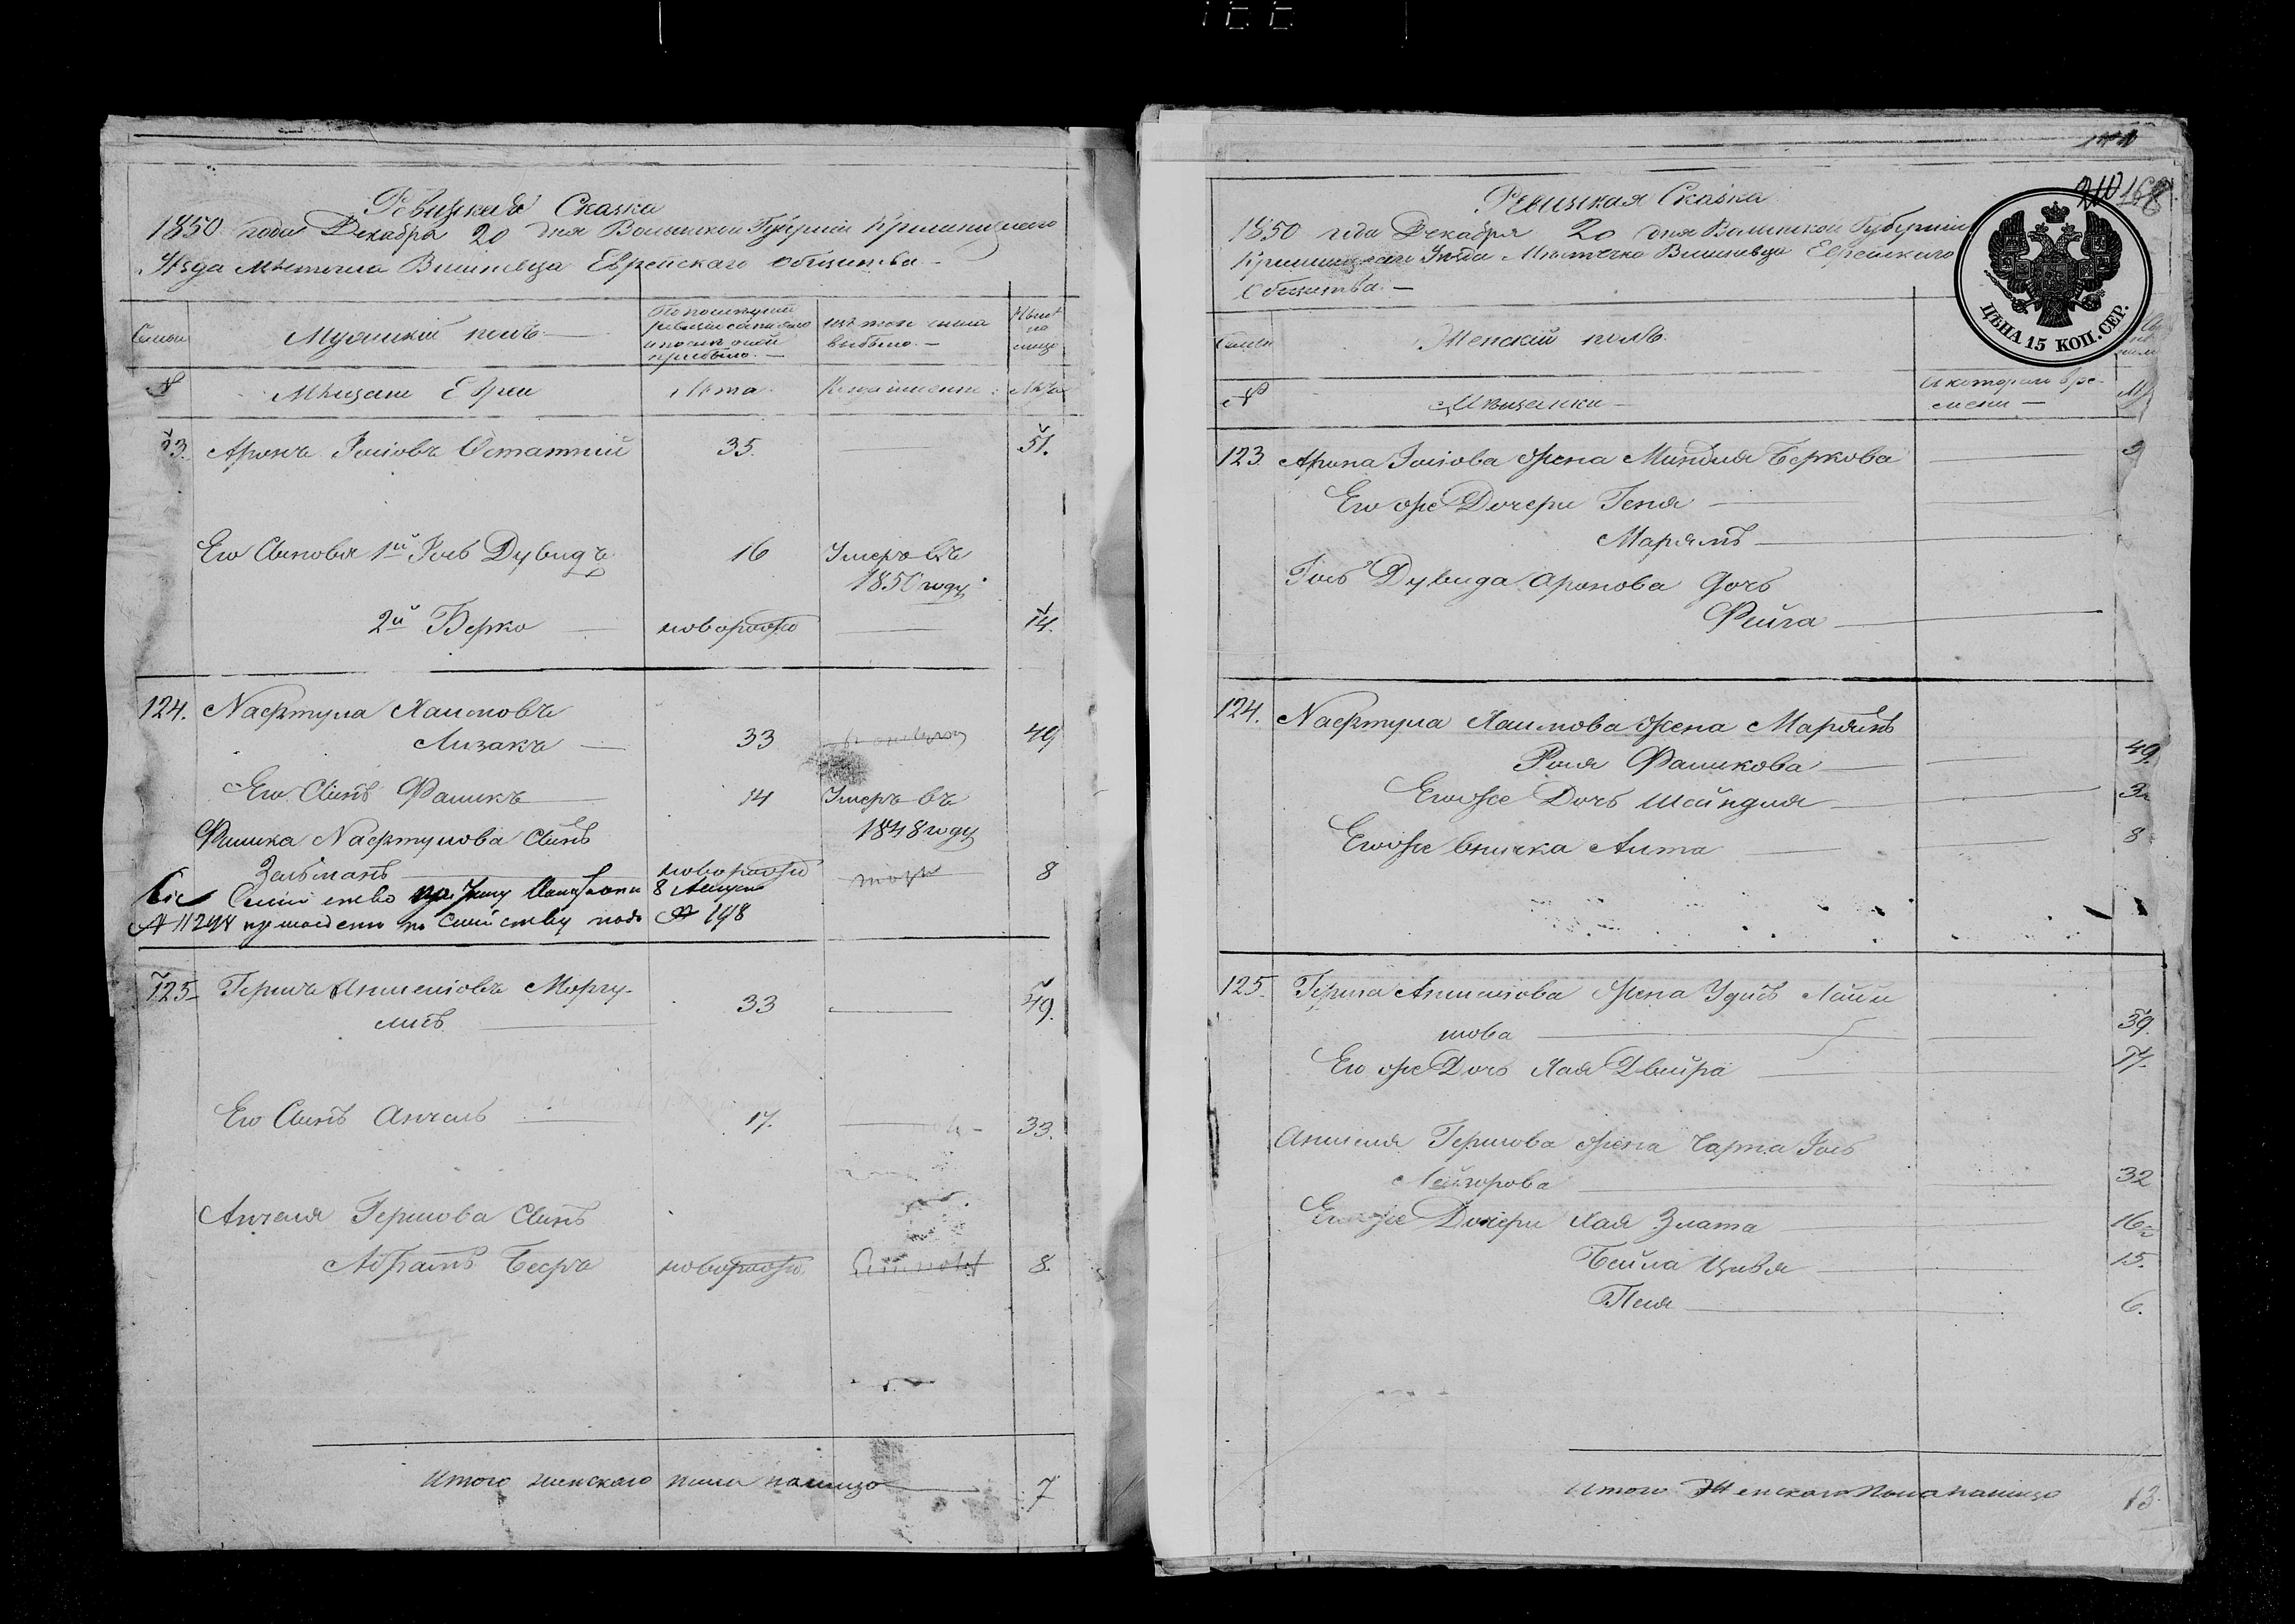 Ревизская Сказка
1850 года Декабря 20 дня Волынской Губерніи Кременецкаго
Уѣзда мѣстечка Вишневца Еврейскаго общества
Семьи
Мужескій полъ
По послѣдней
ревизіи состояло
и послѣ оной
прибыло
изъ того числа
выбыло
Нынѣ
на
лицо
№
Мѣщане Евреи
Лѣта
Лѣта
123. Аронъ Іосіовъ Остатній 35. 51.
Его Сыновья 1й Іось Дувидъ 16 Умеръ въ
1850 году
2й Берко новорожд 14.
124. Нафтула Хаимовъ
Лизакъ 33 49
Его Сынъ Фашикъ 14 Умеръ въ
1848 году
Фашика Нафтулова Сынъ
Зельманъ новорожд 8
Сіе Семейство по
№ 11294 по Семейству подъ № 198
125. Гершъ Аншеліовъ Моргу-
лисъ 33 49.
Его Сынъ Анчель 17. 33.
Анчеля Гершова Сынъ
Абрамъ Беръ новорожд 8.
Итого женскаго пола налицо 7
210 168
Ревизская Сказка
1850 года Декабря 20 дня Волынской Губерніи
Кременецкаго Уѣзда Мѣстечка Вишневца Еврейскаго
Общества
ЦѢНА 15 КОП. СЕР.
Семьи
Женскій полъ
№
Мѣщанки
Въ которомъ вре-
мени
123. Арона Іосіова жена Миндля Беркова
Его же Дочери Геня
Марямъ
Іось Дувида Аронова дочь
Фейга
124. Нафтула Хаимова жена Марьямъ
Роля Фашикова 49
Его же Дочь Шейндля
Его же внучка Аита 8
125. Герша Аншеліова жена Удись Лейи
това 39.
Его же Дочь Хая Двейра 17.
Аншеля Гершова жена Чарна Іось
Лейзорова 32
Его же Дочери Хая Злата 16
Бейла Цивья 15.
Песя 6.
Итого Женскаго пола налицо 13